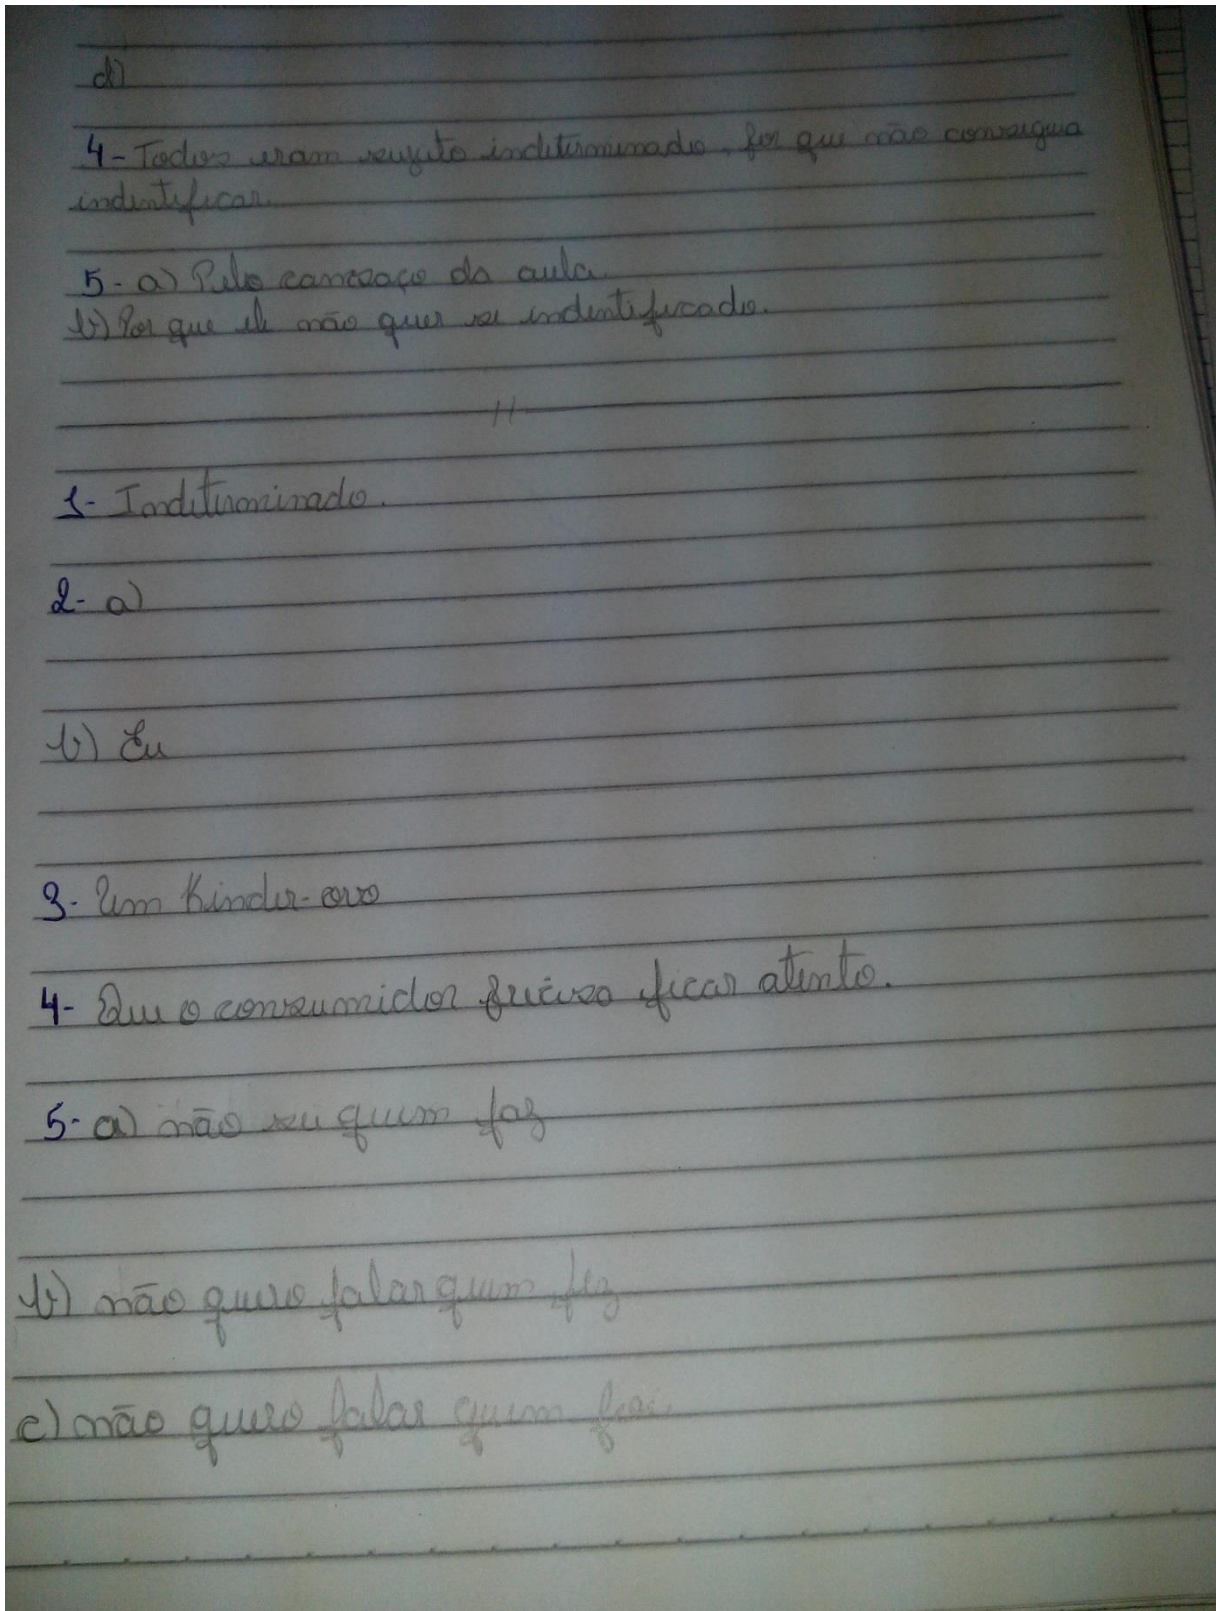 d)
4- Todos eram sujeito indeterminado, por que não conseguia
indentificar.
5- a) Pelo cansaço da aula.
b) Por que ele não quer se indentificado.
//
1- Indeterminado.
2- a)
b) Eu
3- Um Kinder-ovo
4- Que o consumidor precisa ficar atento.
5- a) não sei quem faz
b) não quero falar quem fez
c) não quero falar quem